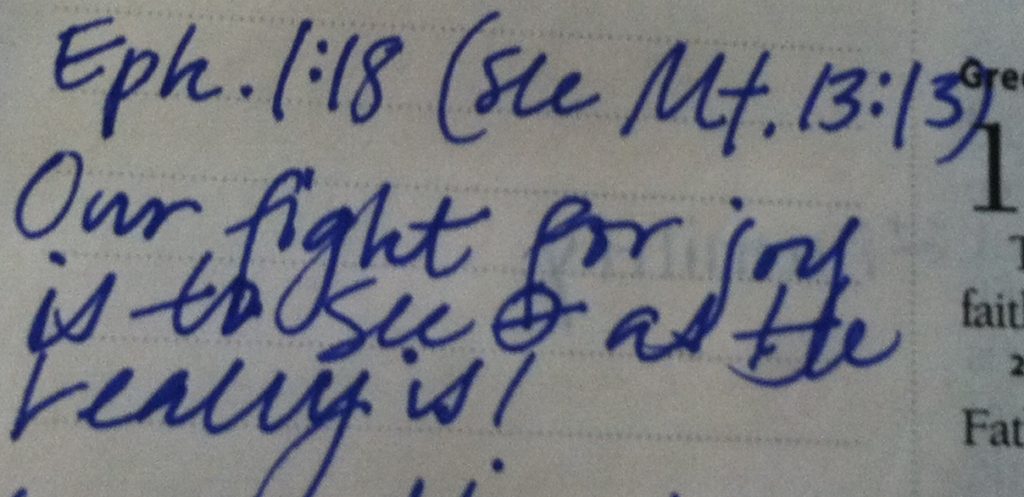 Eph. 1:18 (see Mt. 13:13)
Our fight for joy
is to see ⊕ as He
really is!
Gre
1
T
fait
2
Fat